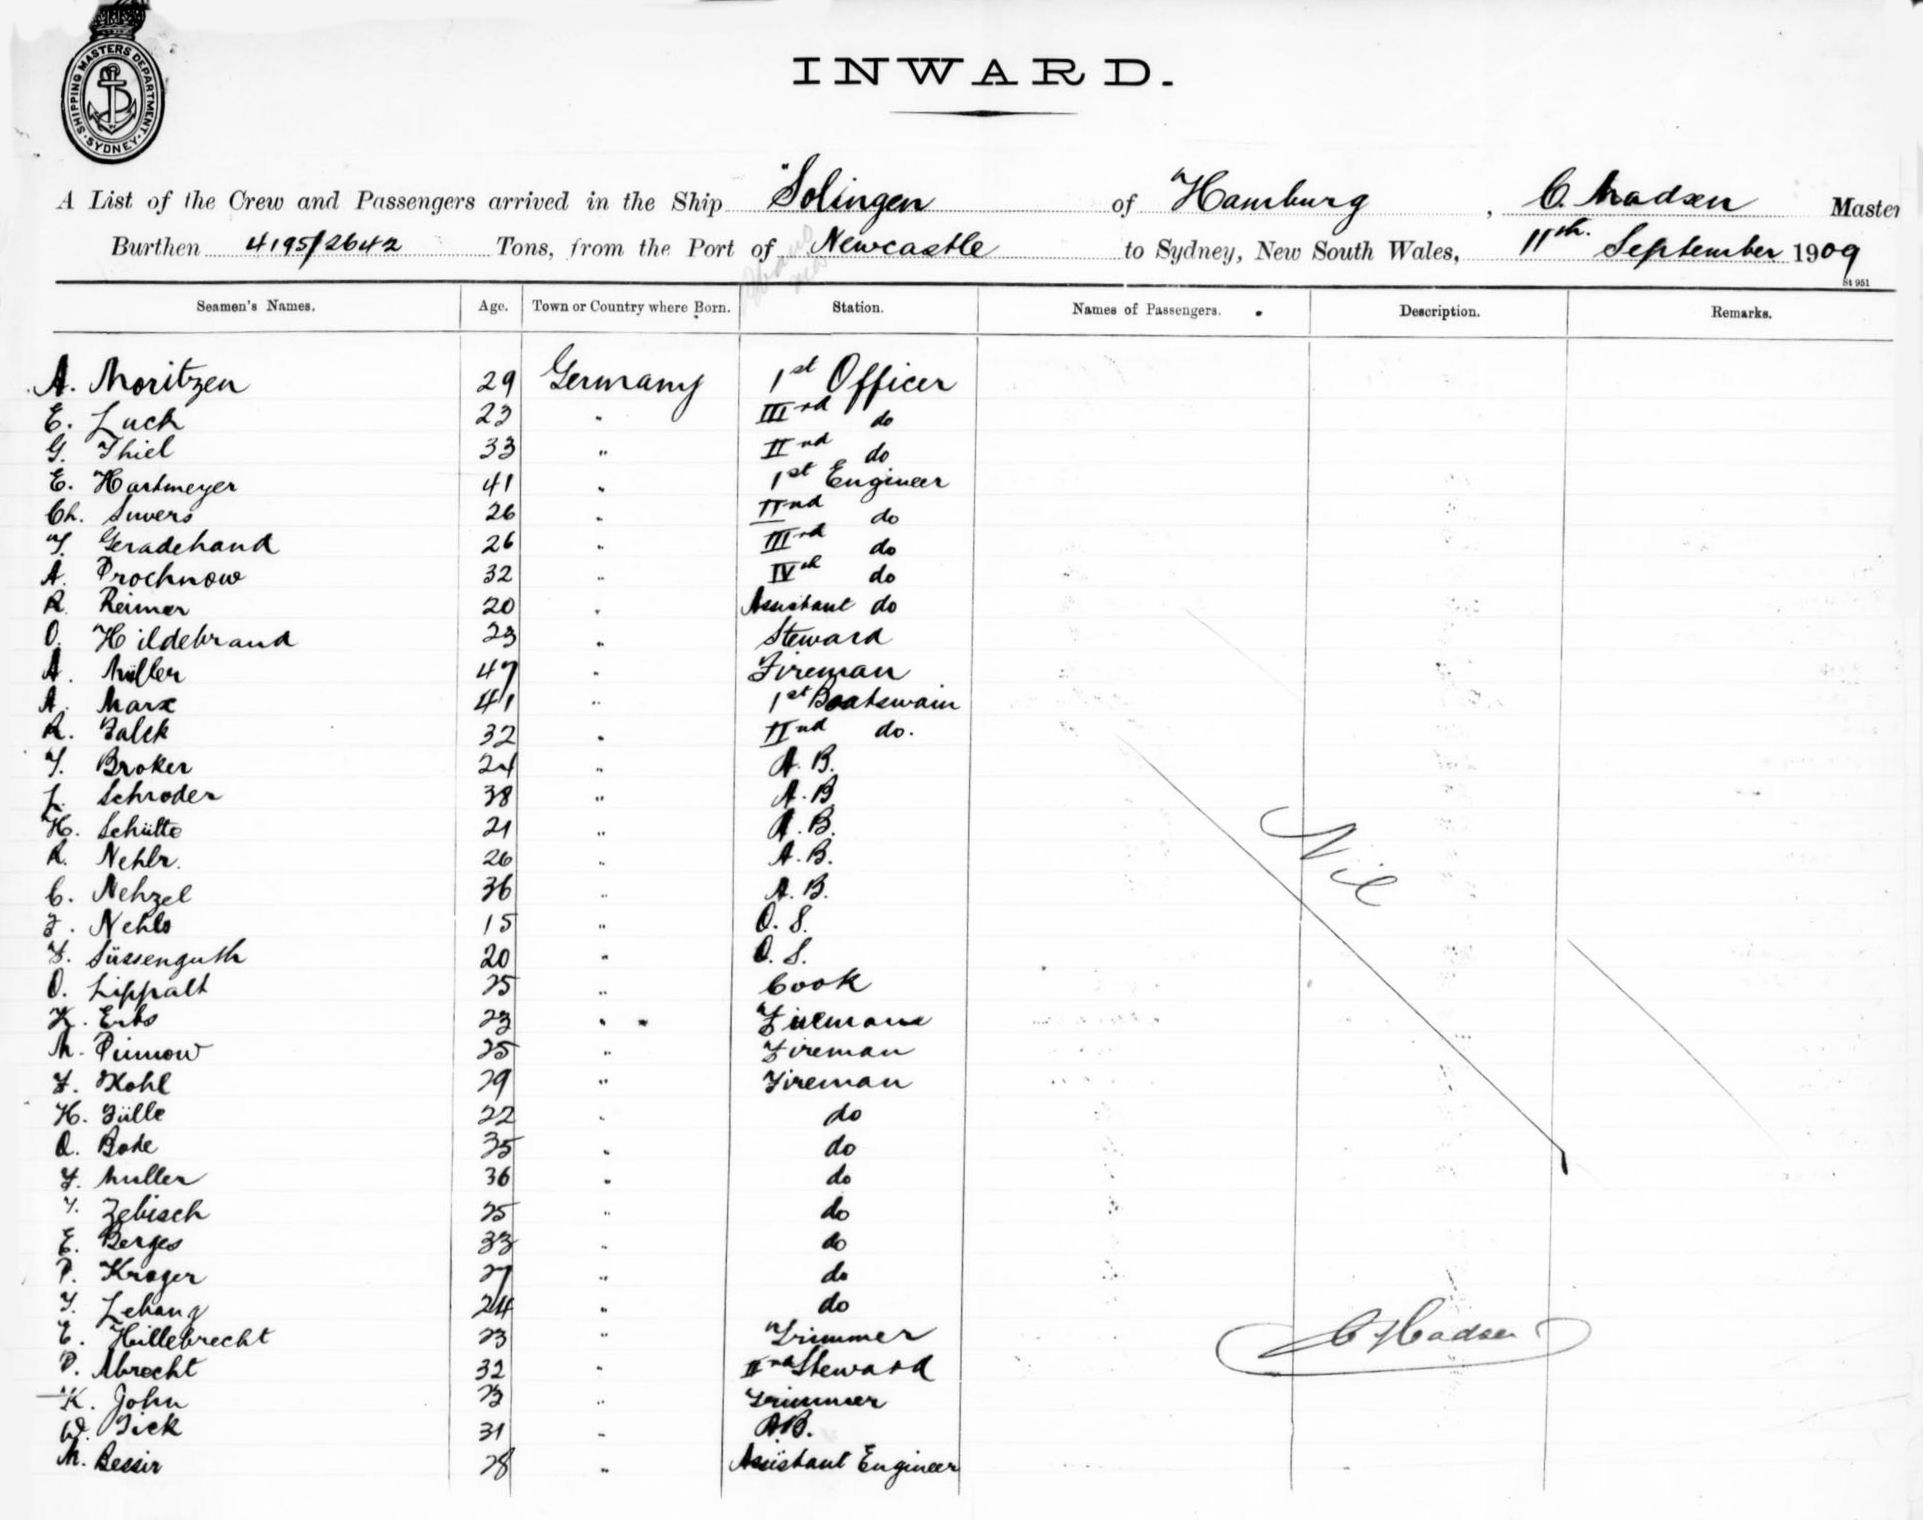 SHIPPING MASTERS DEPARTMENT · SYDNEY ·
INWARD.
A List of the Crew and Passengers arrived in the Ship "Solingen of Hamburg, C. Madsen Master
Burthen 4195/2642 Tons, from the Port of Newcastle to Sydney, New South Wales, 11th. September 1909
St 951
Seamen's Names. Age. Town or Country where Born. Station. Names of Passengers. Description. Remarks.
A. Moritzen 29 Germany 1st Officer
E. Luck 23 " IIIrd do
G. Thiel 33 " IInd do
E. Hartmeyer 41 " 1st Engineer
Ch. Suvers 26 " IInd do
Geradehand 26 " IIIrd do
A. Prochnow 32 " IVth do
R. Reimer 20 " Assistant do
O. Hildebrand 23 " Steward
A. Müller 47 " Fireman
A. Marx 41 " 1st Boatswain
R. Falck 32 " IInd do.
Broker 24 " A. B.
L. Schroder 38 " A. B
H. Schütte 21 " A. B.
R. Nehlr. 26 " A. B.
C. Nehzel 36 " A. B.
F. Nehls 15 " O. S.
F. Süssenguth 20 " O. S.
O. Lippalt 25 " Cook
K. Erbs 23 " Fireman
M. Pinnow 25 " Fireman
F. Kohl 29 " Fireman
H. Fülle 22 " do
O. Bode 35 " do
F. Muller 36 " do
Zebisch 25 " do
E. Berges 33 " do
P. Kroger 27 " do
Lehang 24 " do
E. Hillebrecht 23 " Trimmer
P. Abrecht 32 " IInd Steward
K. John 23 " Trimmer
W. Fick 31 " A.B.
M. Bessir 28 " Assistant Engineer
Nil
C Madsen